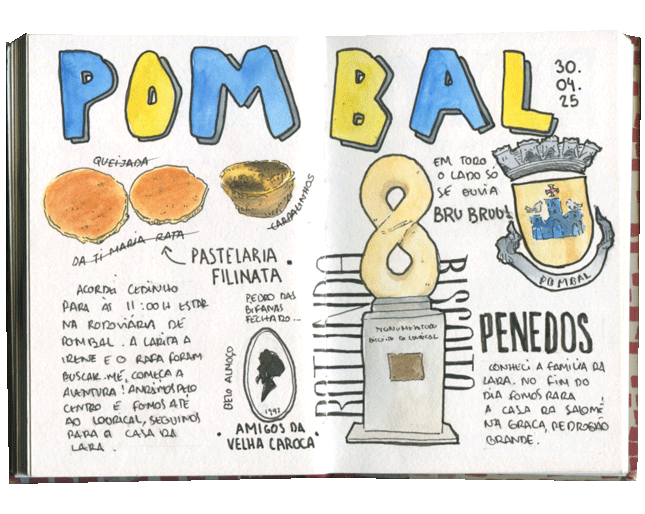 POMBAL
30.
04.
25
QUEIJADA
DA TI MARIA RATA
CARDALINHOS
PASTELARIA
FILINATA.
ACORDEI CEDINHO
PARA ÀS 11:00H ESTAR
NA RODOVIÁRIA DE
POMBAL. A LARITA A
IRENE E O RAFA FORAM
BUSCAR-ME, COMEÇA A
AVENTURA! ANDÁMOS PELO
CENTRO E FOMOS ATÉ
AO LOURIÇAL, SEGUIMOS
PARA A CASA DA
LARA.
PEDRO DAS
BIFANAS
FECHADO...
BELO ALMOÇO
1992
• AMIGOS DA
VELHA CAROCA •
EM TODO
O LADO SÓ
SE OUVIA
BRU BRUU!
POMBAL
BISCOITO
MONUMENTO AO
BISCOITO DO LOURIÇAL
PENEDOS
CONHECI A FAMÍLIA DA
LARA. NO FIM DO
DIA FOMOS PARA
A CASA DA SALOMÉ
NA GRAÇA, PEDROGÃO
GRANDE.